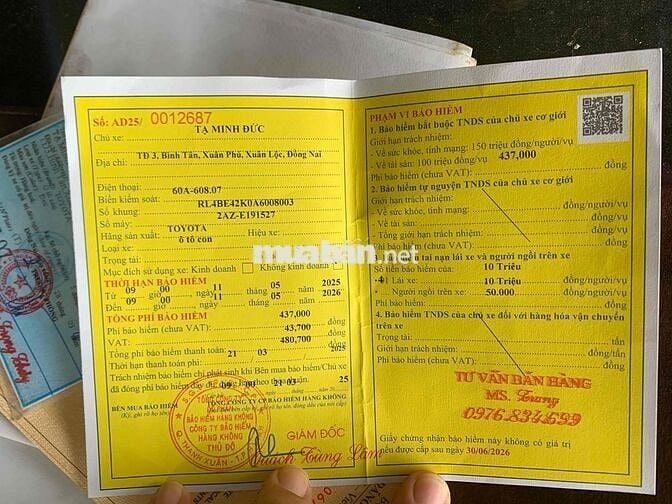 Số: AD25/ 0012687
Chủ xe: TẠ MINH ĐỨC
Địa chỉ: TĐ 3, Bình Tân, Xuân Phú, Xuân Lộc, Đồng Nai
Điện thoại:
Biển kiểm soát: 60A-608.07
Số khung: RL4BE42K0A6008003
Số máy: 2AZ-E191527
Hãng sản xuất: TOYOTA Hiệu xe:
Loại xe: ô tô con
Trọng tải:
Mục đích sử dụng xe: Kinh doanh Không kinh doanh
THỜI HẠN BẢO HIỂM
Từ 09 giờ 00 ngày 11 tháng 05 năm 2025
Đến 09 giờ 00 ngày 11 tháng 05 năm 2026
TỔNG PHÍ BẢO HIỂM
Phí bảo hiểm (chưa VAT): 437,000 đồng
VAT: 43,700 đồng
Tổng phí bảo hiểm: 480,700 đồng
Thời hạn thanh toán phí: 21 03 2025
Trách nhiệm bảo hiểm chỉ phát sinh khi Bên mua bảo hiểm/Chủ xe
09 00 21 03 25
BÊN MUA BẢO HIỂM TỔNG CÔNG TY CP BẢO HIỂM HÀNG KHÔNG
CÔNG TY BẢO HIỂM
HÀNG KHÔNG
THỦ ĐÔ
Q. THANH XUÂN
GIÁM ĐỐC
Quách Tùng Lâm
PHẠM VI BẢO HIỂM
1. Bảo hiểm bắt buộc TNDS của chủ xe cơ giới
Giới hạn trách nhiệm:
- Về sức khỏe, tính mạng: 150 triệu đồng/người/vụ
- Về tài sản: 100 triệu đồng/vụ
Phí bảo hiểm (chưa VAT): 437,000 đồng
2. Bảo hiểm tự nguyện TNDS của chủ xe cơ giới
Giới hạn trách nhiệm:
- Về sức khỏe, tính mạng: đồng/người/vụ
- Về tài sản: đồng/vụ
- Tổng giới hạn trách nhiệm: đồng/vụ
Phí bảo hiểm (chưa VAT): đồng
tai nạn lái xe và người ngồi trên xe
Số tiền bảo hiểm của: 10 Triệu
Lái xe: 10 Triệu đồng/người/vụ
Người ngồi trên xe: 50.000 đồng/người/vụ
Phí bảo hiểm: đồng
4. Bảo hiểm TNDS của chủ xe đối với hàng hóa vận chuyển
trên xe
Trọng tải: tấn
Giới hạn trách nhiệm: đồng/tấn
Phí bảo hiểm (chưa VAT): đồng
TƯ VẤN BÁN HÀNG
MS. Trang
0976.834.699
Giấy chứng nhận bảo hiểm này không có giá trị
nếu được cấp sau ngày 30/06/2026
muaban.net